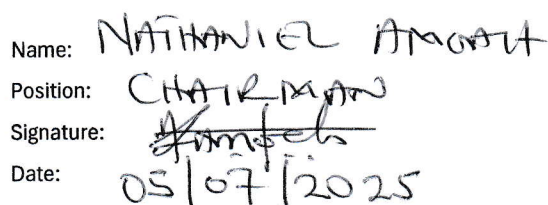 Name: NATHANIEL AMOAH
Position: CHAIRMAN
Signature:
Date: 05/07/2025